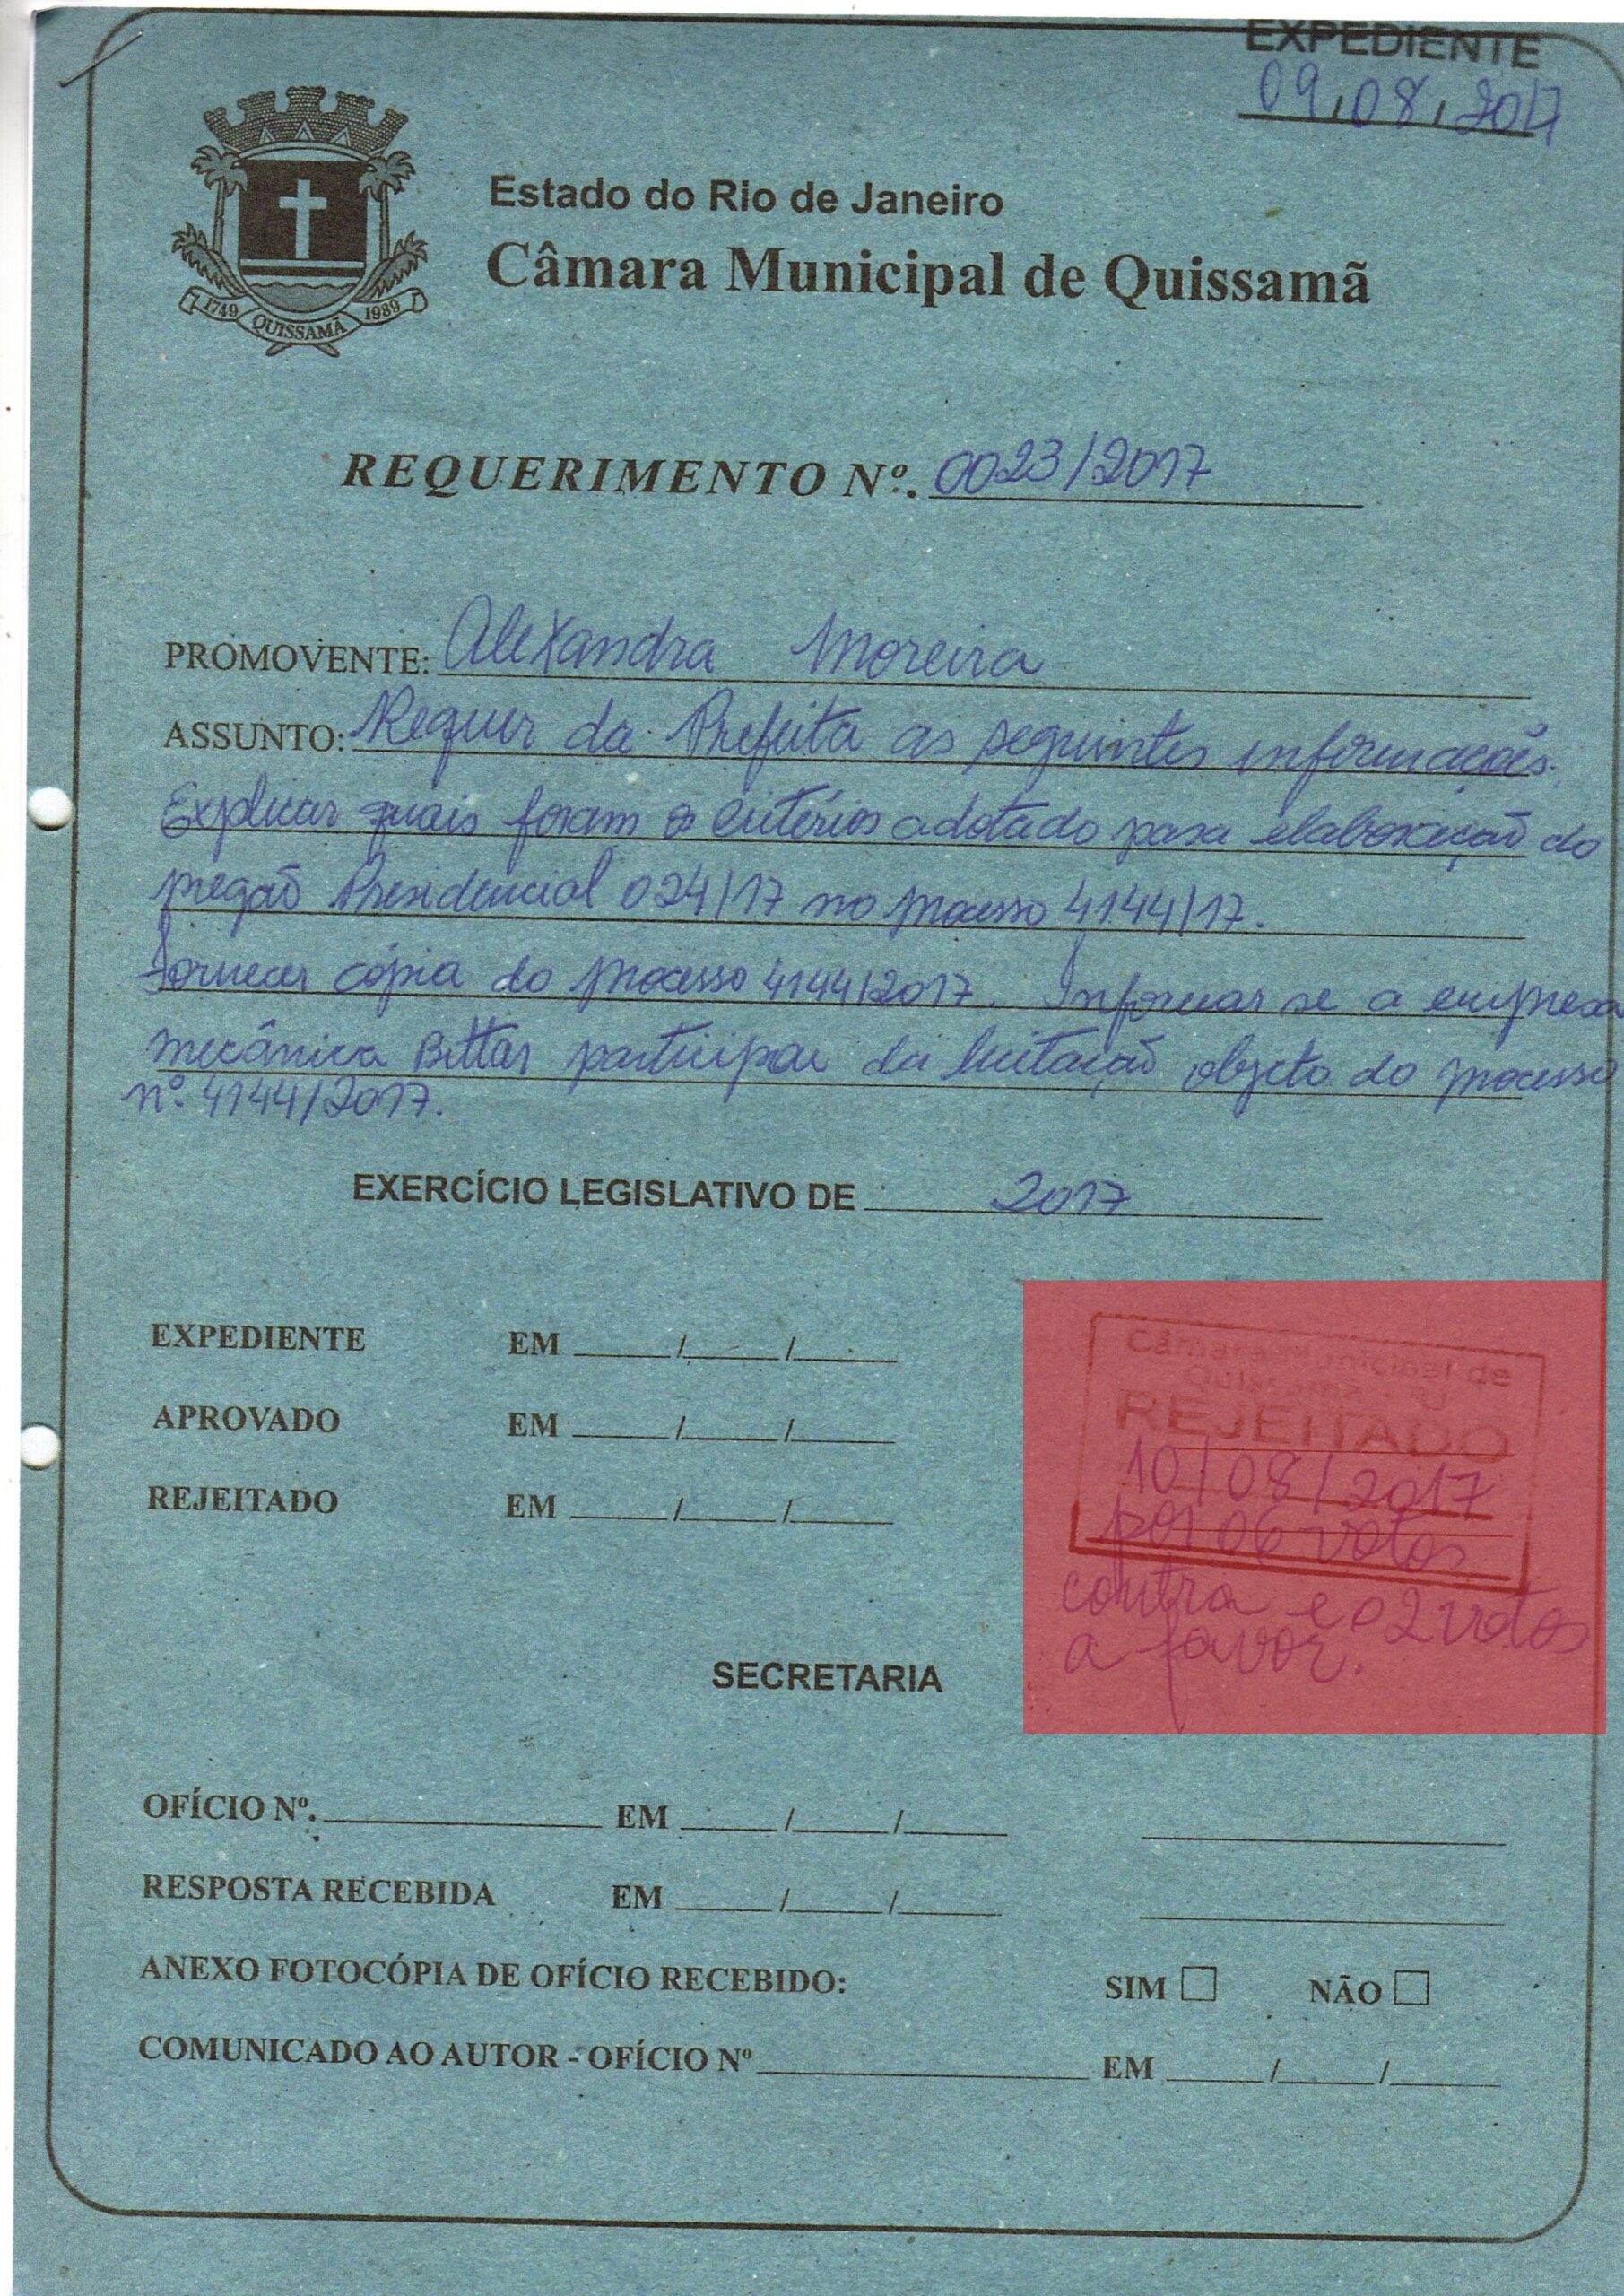 EXPEDIENTE
09/08/2017
Estado do Rio de Janeiro
Câmara Municipal de Quissamã
1749 QUISSAMÃ 1989
REQUERIMENTO Nº. 0023/2017
PROMOVENTE: Alexandra Moreira
ASSUNTO: Requer da Prefeita as seguintes informações.
Explicar quais foram os critérios adotado para elaboração do
pregão Presidencial 024/17 no processo 4144/17.
Fornecer cópia do processo 4144/2017. Informar se a empresa
mecânica Bittar participou da licitação objeto do processo
nº. 4144/2017.
EXERCÍCIO LEGISLATIVO DE 2017
EXPEDIENTE EM ____/____/____
APROVADO EM ____/____/____
REJEITADO EM ____/____/____
Câmara Municipal de
Quissamã - RJ
REJEITADO
10/08/2017
por 06 votos
contra e 02 votos
a favor.
SECRETARIA
OFÍCIO Nº. ________ EM ____/____/____
RESPOSTA RECEBIDA EM ____/____/____
ANEXO FOTOCÓPIA DE OFÍCIO RECEBIDO: SIM □ NÃO □
COMUNICADO AO AUTOR - OFÍCIO Nº ________ EM ____/____/____